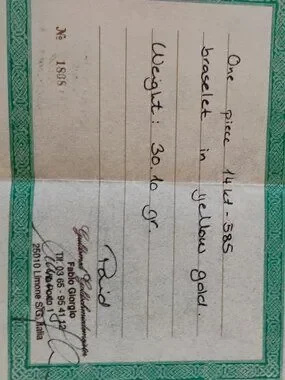 No 1808
One piece 14 kt - 585
braselet in yellow gold.
Weight: 30.10 gr.
Paid
Fabio Giorgio
Tel. 03 65 - 95 41 12
Via Porto 1
25010 Limone S/G. Italia